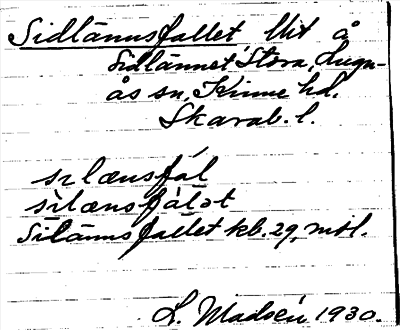 Sidlännsfallet Mit å
Sidlännet Stora, Lugn-
ås sn, Kinne hd.
Skarab. l.
sɪlænsfál
sɪlænsfálət
Silännsfallet kb. 29, mtl.
L. Madsén 1930.